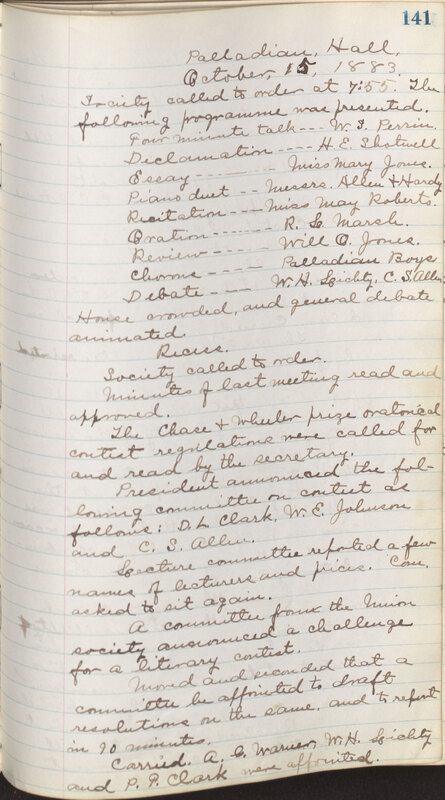 141
Palladian, Hall,
October, 15, 1883.
Society called to order at 7:55. The
following programme was presented.
Four minute talk --- W. F. Perrin.
Declamation ---- H. E. Shotwell
Essay ------- Miss Mary Jones.
Piano duet -- Messrs. Allen & Hardy
Recitation ---- Miss May Roberts.
Oration ------ R. S. Marsh.
Review ----- Will O. Jones.
Chorous ---- Palladian Boys
Debate ---- W. H. Lichty, C. S. Allen
House crowded, and general debate
animated.
Recess.
Society called to order.
Minutes of last meeting read and
approved.
The Chase & Wheeler prize oratorical
contest regulations were called for
and read by the secretary.
President announced the fol-
lowing committee on contest as
follows: D. L. Clark, W. E. Johnson
and C. S. Allen.
Lecture committee reported a few
names of lecturers and prices. Com.
asked to sit again.
A committee from the Union
society announced a challenge
for a literary contest.
Moved and seconded that a
committee be appointed to draft
resolutions on the same, and to report
in 10 minutes.
Carried. A. G. Warner, W. H. Lichty
and P. F. Clark were appointed.